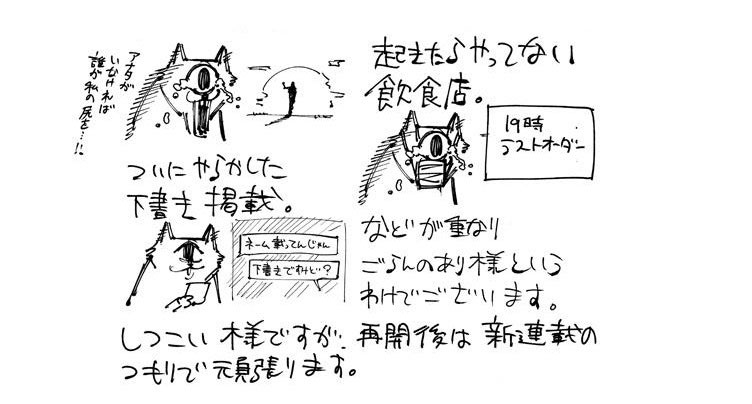 起きたらやってない
飲食店。
19時
ラストオーダー
アナタが
いなければ
誰が私の尻を…!!
ついにやらかした
下書き掲載。
ネーム載ってんじゃん
下書きですけど?
などが重なり
ごらんのあり様という
わけでございます。
しつこい様ですが、再開後は新連載の
つもりで頑張ります。